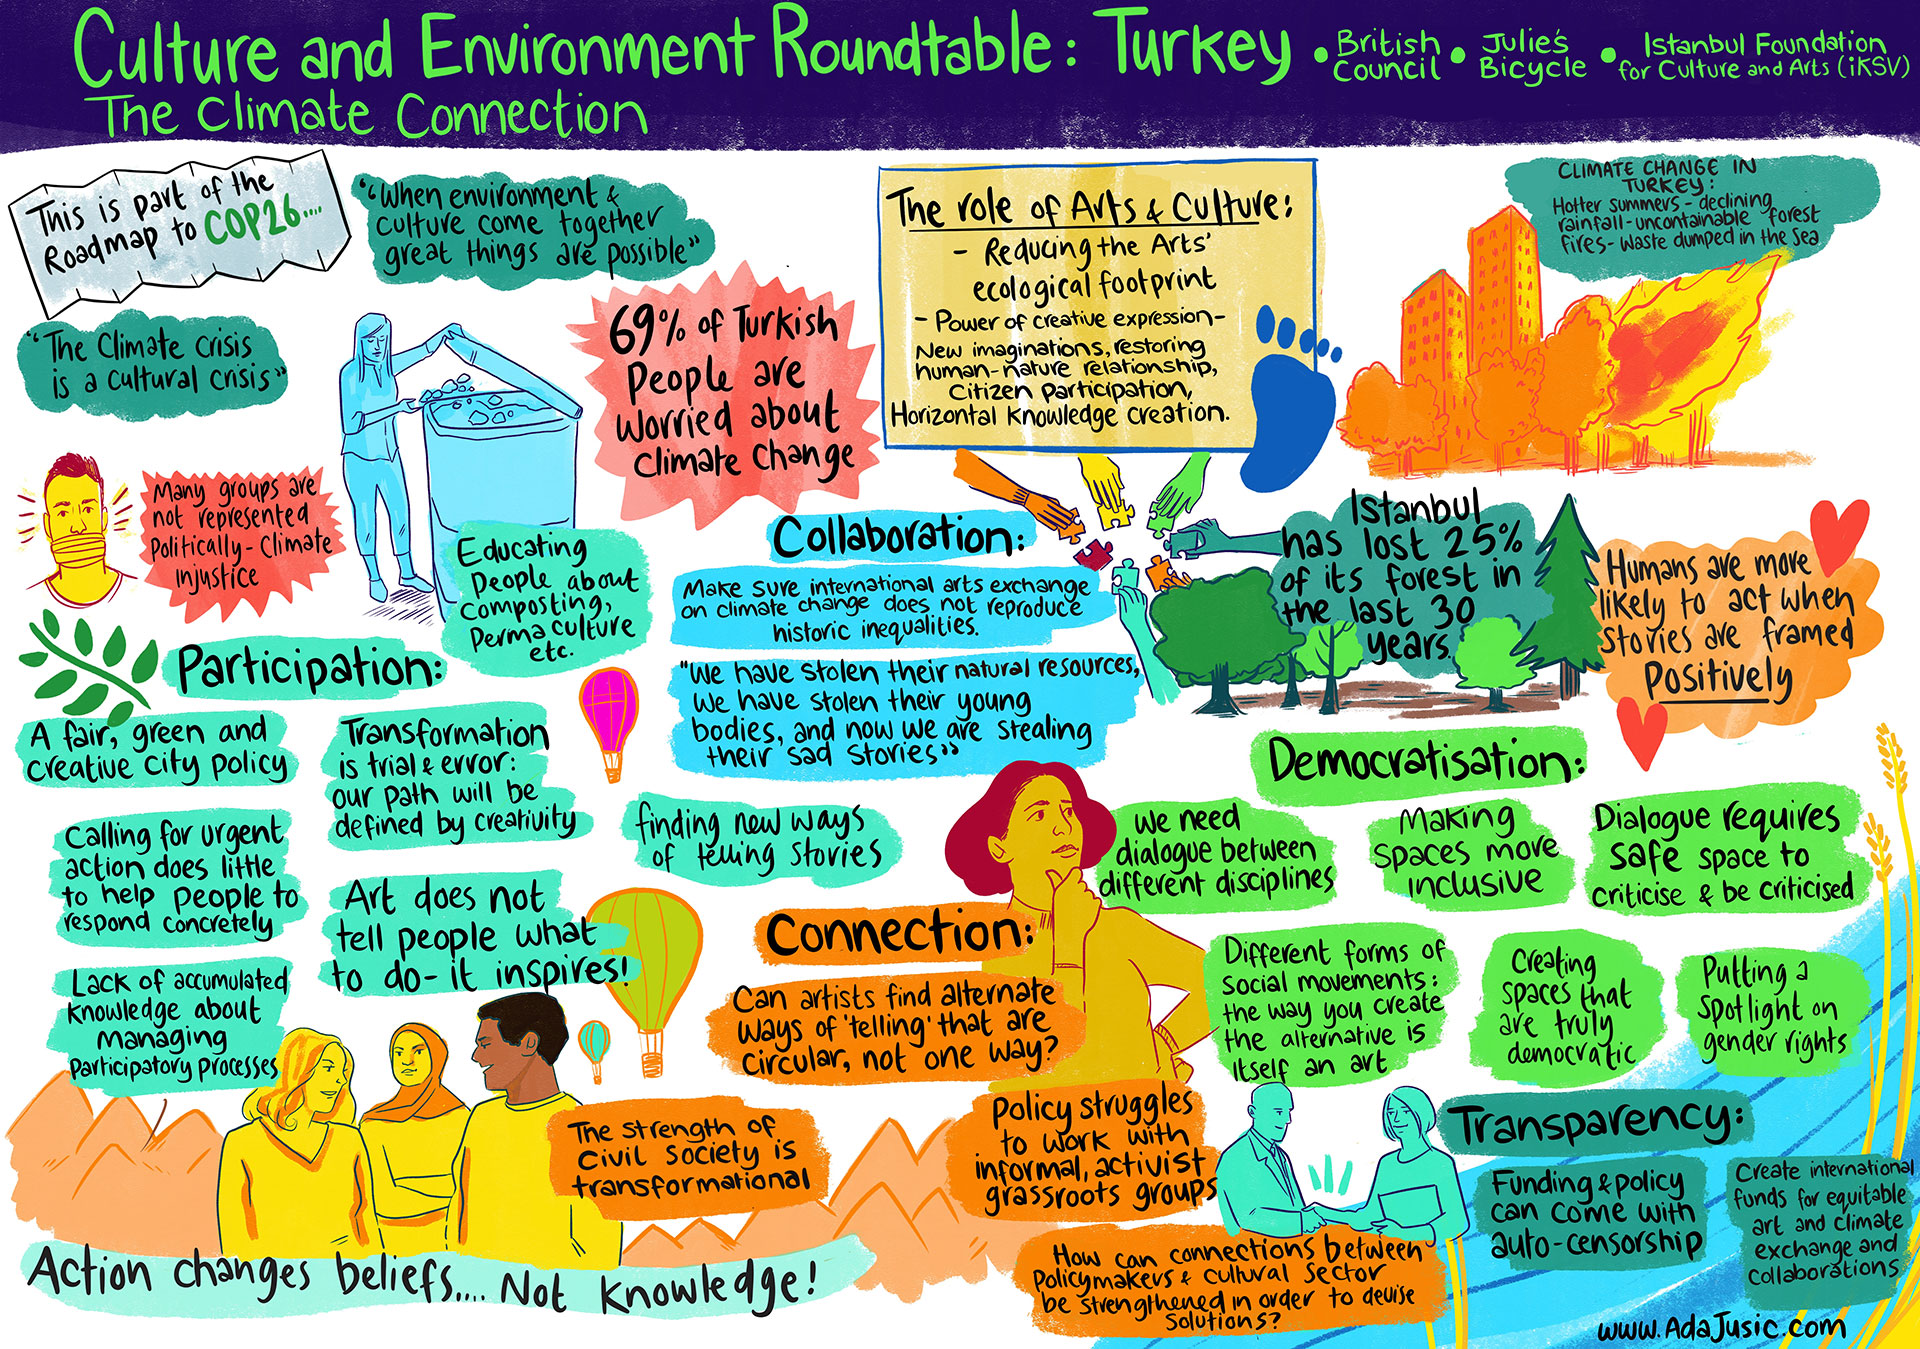 Culture and Environment Roundtable: Turkey
The Climate Connection
• British Council
• Julie's Bicycle
• Istanbul Foundation
for Culture and Arts (iKSV)
This is part of the
Roadmap to COP26....
"When environment &
culture come together
great things are possible"
"The Climate crisis
is a cultural crisis"
69% of Turkish
People are
Worried about
Climate Change
The role of Arts & Culture:
- Reducing the Arts'
ecological footprint
- Power of creative expression-
New imaginations, restoring
human-nature relationship,
Citizen participation,
Horizontal knowledge creation.
CLIMATE CHANGE IN
TURKEY:
Hotter summers - declining
rainfall - uncontainable forest
fires - waste dumped in the sea
Many groups are
not represented
Politically - Climate
injustice
Educating
people about
composting,
Perma culture
etc.
Collaboration:
Make sure international arts exchange
on climate change does not reproduce
historic inequalities.
"We have stolen their natural resources,
we have stolen their young
bodies, and now we are stealing
their sad stories"
Istanbul
has lost 25%
of its forest in
the last 30
years.
Humans are more
likely to act when
stories are framed
Positively
Participation:
A fair, green and
creative city policy
Transformation
is trial & error:
our path will be
defined by creativity
Calling for urgent
action does little
to help people to
respond concretely
Art does not
tell people what
to do - it inspires!
Lack of accumulated
knowledge about
managing
participatory processes
finding new ways
of telling stories
Connection:
Can artists find alternate
ways of 'telling' that are
circular, not one way?
The strength of
civil society is
transformational
Policy struggles
to work with
informal, activist
grassroots groups
How can connections between
policymakers & cultural sector
be strengthened in order to devise
solutions?
Democratisation:
We need
dialogue between
different disciplines
Making
spaces more
inclusive
Dialogue requires
safe space to
criticise & be criticised
Different forms of
social movements:
the way you create
the alternative is
itself an art
Creating
spaces that
are truly
democratic
Putting a
spotlight on
gender rights
Transparency:
Funding & policy
can come with
auto-censorship
Create international
funds for equitable
art and climate
exchange and
collaborations
Action changes beliefs.... Not knowledge!
www.AdaJusic.com